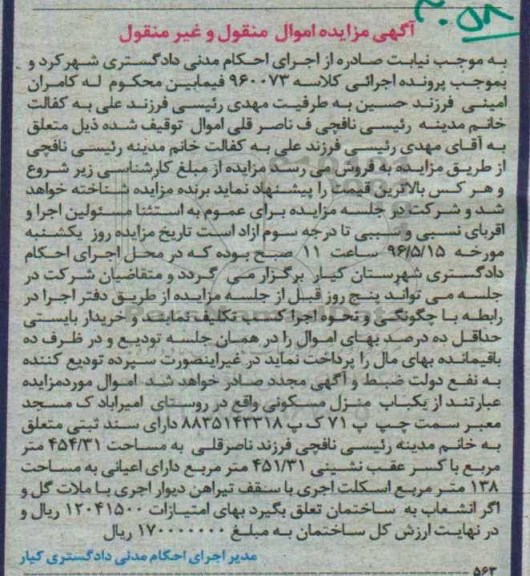 ۲۰۵۸
آگهی مزایده اموال منقول و غیر منقول
به موجب نیابت صادره از اجرای احکام مدنی دادگستری شهرکرد و
بموجب پرونده اجرائی کلاسه ۹۶۰۰۷۳ فیمابین محکوم له کامران
امینی فرزند حسین به طرفیت مهدی رئیسی فرزند علی به کفالت
خانم مدینه رئیسی نافچی ف ناصر قلی اموال توقیف شده ذیل متعلق
به آقای مهدی رئیسی فرزند علی به کفالت خانم مدینه رئیسی نافچی
از طریق مزایده به فروش می رسد مزایده از مبلغ کارشناسی زیر شروع
و هر کس بالاترین قیمت را پیشنهاد نماید برنده مزایده شناخته خواهد
شد و شرکت در جلسه مزایده برای عموم به استثنا مسئولین اجرا و
اقربای نسبی و سببی تا درجه سوم ازاد است تاریخ مزایده روز یکشنبه
مورخه ۹۶/۵/۱۵ ساعت ۱۱ صبح بوده که در محل اجرای احکام
دادگستری شهرستان کیار برگزار می گردد و متقاضیان شرکت در
جلسه می تواند پنج روز قبل از جلسه مزایده از طریق دفتر اجرا در
رابطه با چگونگی و نحوه اجرا کسب تکلیف نمایند و خریدار بایستی
حداقل ده درصد بهای اموال را در همان جلسه تودیع و در ظرف ده
باقیمانده بهای مال را پرداخت نماید در غیراینصورت سپرده تودیع کننده
به نفع دولت ضبط و آگهی مجدد صادر خواهد شد اموال موردمزایده
عبارتند از یکباب منزل مسکونی واقع در روستای امیراباد ک مسجد
معبر سمت چپ پ ۷۱ ک پ ۸۸۳۵۱۴۳۳۱۸ دارای سند ثبتی متعلق
به خانم مدینه رئیسی نافچی فرزند ناصرقلی به مساحت ۴۵۴/۳۱ متر
مربع با کسر عقب نشینی ۴۵۱/۳۱ متر مربع دارای اعیانی به مساحت
۱۳۸ متر مربع اسکلت اجری با سقف تیراهن دیوار اجری با ملات گل و
اگر انشعاب به ساختمان تعلق بگیرد بهای امتیازات ۱۲۰۴۱۵۰۰ ریال و
در نهایت ارزش کل ساختمان به مبلغ ۱۷۰۰۰۰۰۰۰ ریال
مدیر اجرای احکام مدنی دادگستری کیار
۵۶۳